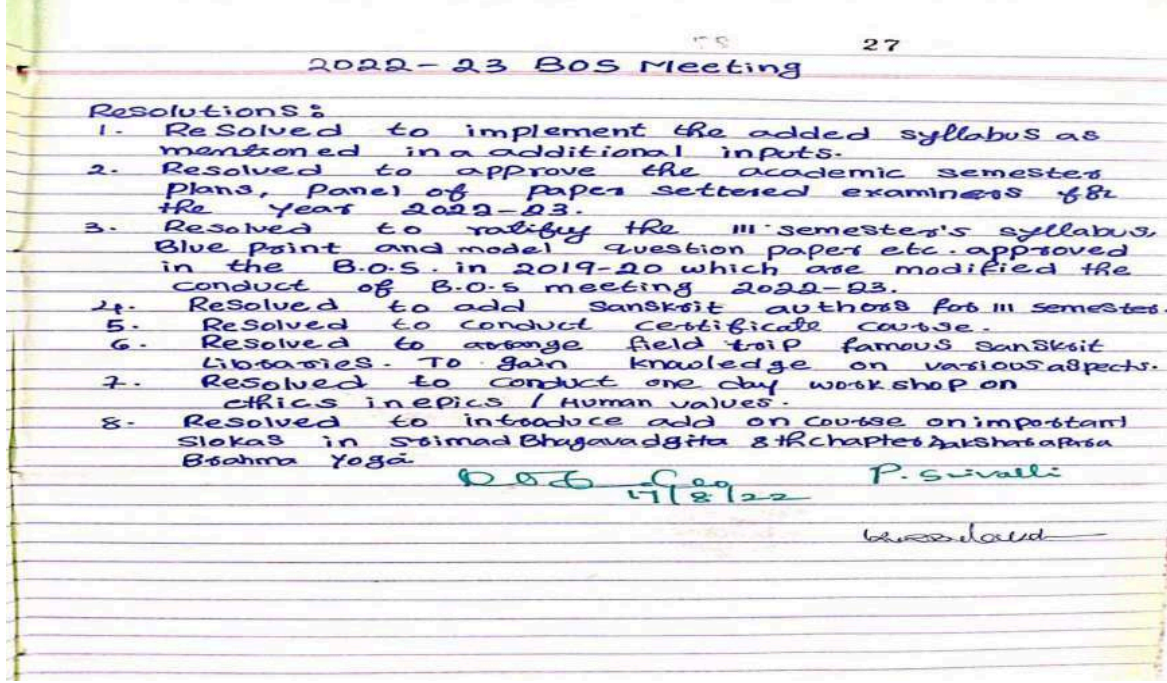 27
2022-23 BOS Meeting
Resolutions:
1. Resolved to implement the added syllabus as
mentioned in a additional inputs.
2. Resolved to approve the academic semester
Plans, Panel of paper settered examiners for
the Year 2022-23.
3. Resolved to ratifuy the III semester's syllabus,
Blue Point and model question paper etc. approved
in the B.O.S. in 2019-20 which are modified the
conduct of B.O.S meeting 2022-23.
4. Resolved to add Sanskrit authors for III semester.
5. Resolved to conduct certificate course.
6. Resolved to arrange field trip famous Sanskrit
Libraries. To gain knowledge on various aspects.
7. Resolved to conduct one day workshop on
ethics in epics / Human values.
8. Resolved to introduce add on course on important
Slokas in srimad Bhagavadgita 8th chapter
Brahma Yoga
17/8/22
P. Srivalli